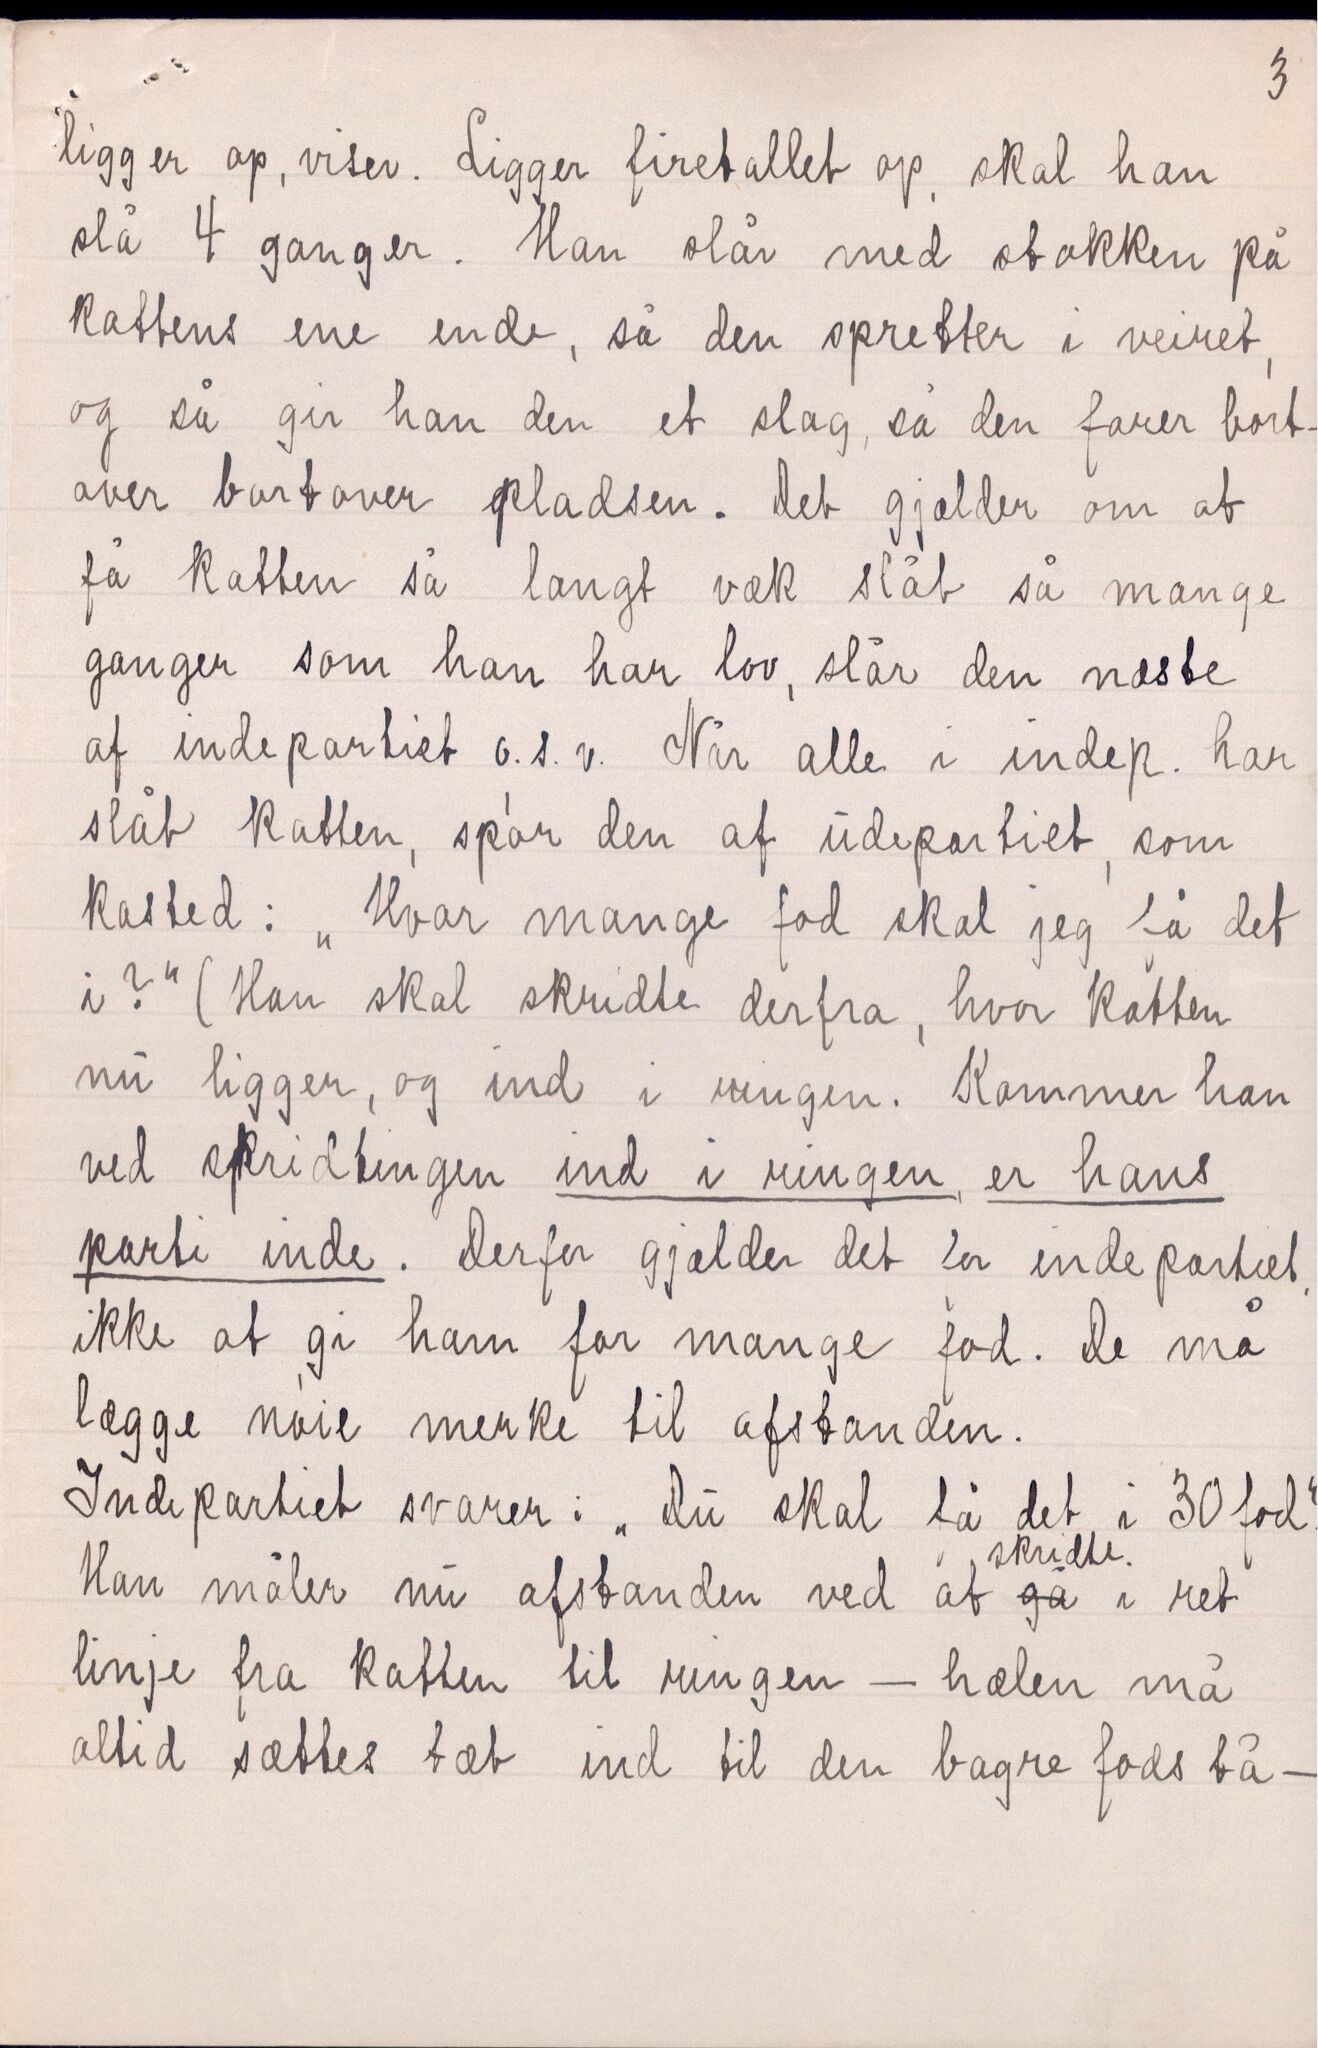 3
ligger op, viser. Ligger firetallet op, skal han
slå 4 ganger. Han slår med stokken på
kattens ene ende, så den spretter i veiret,
og så gir han den et slag, så den farer bort-
over bortover pladsen. Det gjælder om at
få katten så langt væk slåt så mange
ganger som han har lov, slår den næste
af indepartiet o.s.v. Når alle i indep. har
slåt katten, spør den af udepartiet, som
kasted: „Hvor mange fod skal jeg få det
i?" (Han skal skridte derfra, hvor katten
nu ligger, og ind i ringen. Kommer han
ved skridtingen ind i ringen, er hans
parti inde. Derfor gjælder det for indepartiet,
ikke at gi ham for mange fod. De må
lægge nøie merke til afstanden.
Indepartiet svarer: „Du skal få det i 30 fod".
skridte.
Han måler nu afstanden ved at gå i ret
linje fra katten til ringen — hælen må
altid sættes tæt ind til den bagre fods tå —